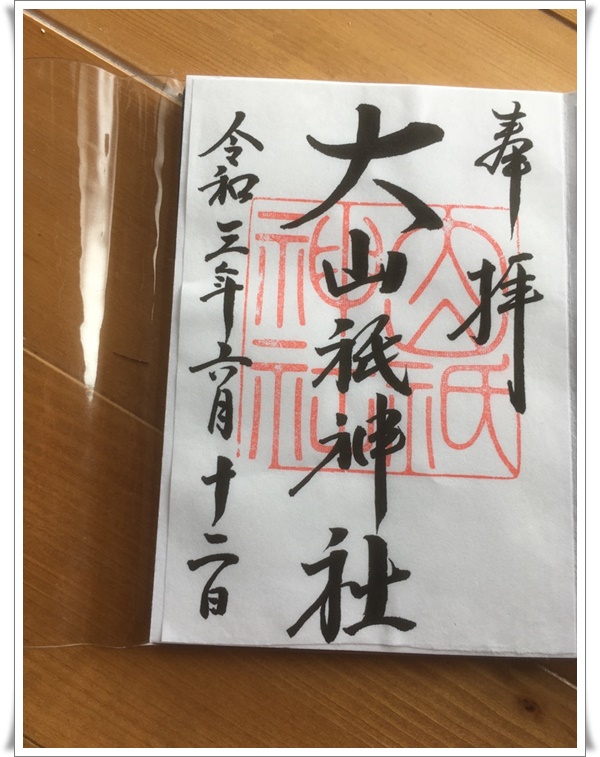 奉拝
大山祇神社
令和三年六月十二日
大山祇
神社